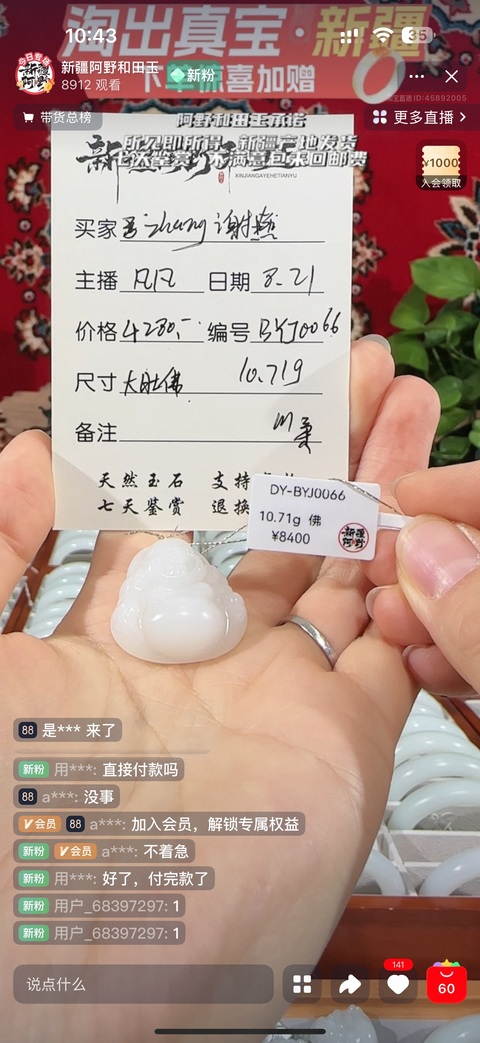 淘出真宝·新疆
10:43
35
下单惊喜加赠
新疆阿野和田玉
8912 观看
新粉
今日专场
新疆阿野
ID:45892005
带货总榜
更多直播
阿野和田玉承诺
所见即所得 新疆产地发货
七天鉴赏 不满意包来回邮费
XINJIANGAYEHETIANYU
¥1000
入会领取
买家
主播 凡凡 日期 8.21
价格 4280.- 编号 BYJ0066
尺寸 大肚佛 10.71g
备注
天然玉石 支持
七天鉴赏 退换
DY-BYJ0066
10.71g 佛
¥8400
新疆阿野
88 是*** 来了
新粉 用***: 直接付款吗
88 a***: 没事
V会员 88 a***: 加入会员，解锁专属权益
新粉 V会员 a***: 不着急
新粉 用***: 好了，付完款了
新粉 用户_68397297: 1
新粉 用户_68397297: 1
说点什么
141
60